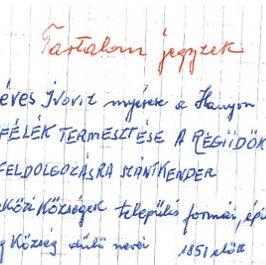 Tartalom jegyzek
éves Ivovit nyerése a Hanyon
FÉLÉK TERMESZTÉSE A RÉGI IDŐK
FELDOLGOZÁSRA SZÁNT KENDER
közi Községek település formái, épí
g Község dülő nevei 1851 előtt